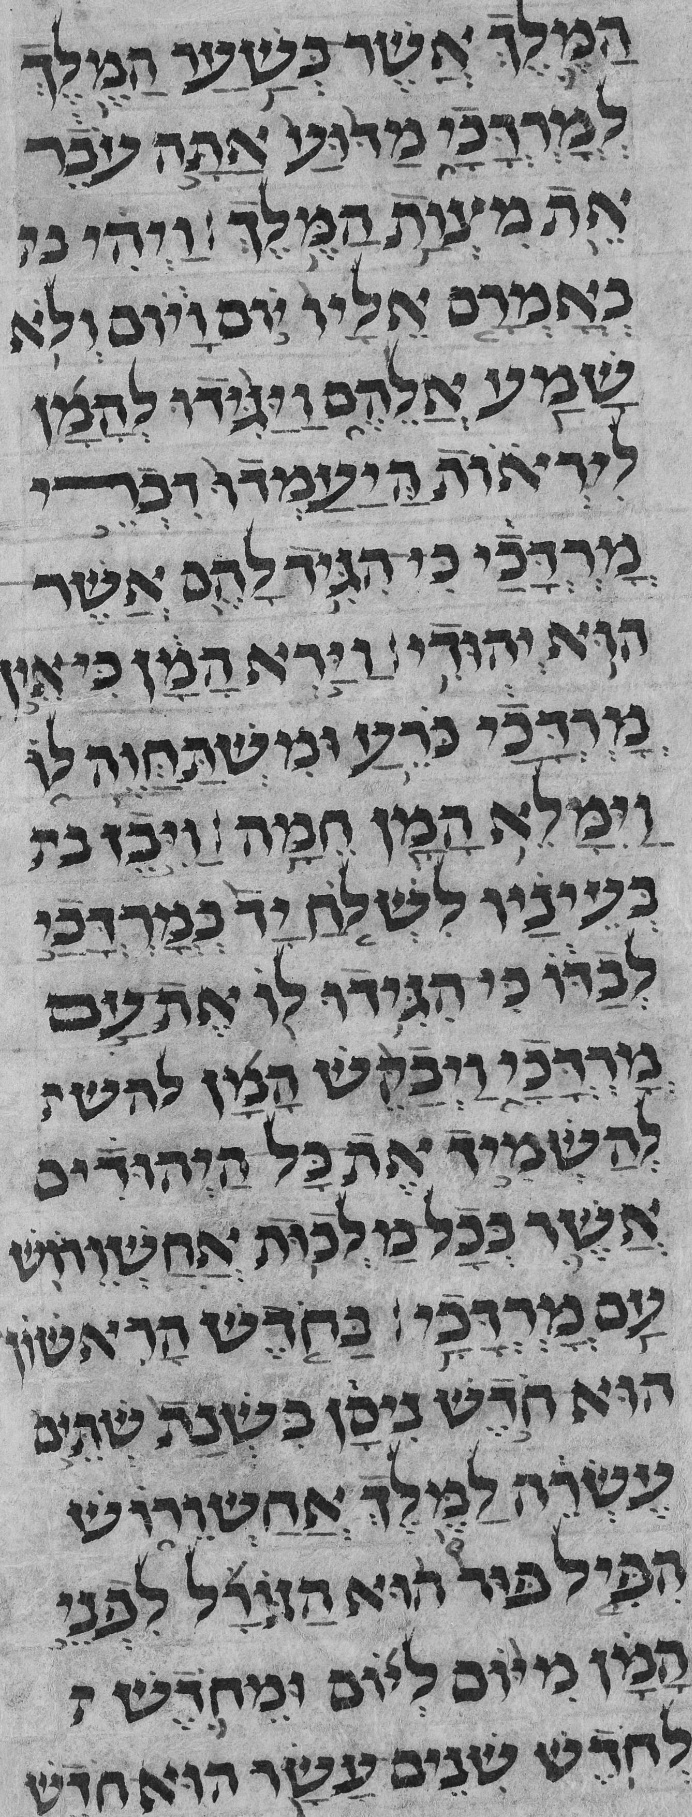 המלך אשר בשער המלך
למרדכי מדוע אתה עבר
את מצות המלך׃ ויהי כ
כאמרם אליו יום ויום ולא
שמע אלהם ויגידו להמן
ליראות היעמדו דברי
מרדכי כי הגיד להם אשר
הוא יהודי׃ וירא המן כי אין
מרדכי כרע ומשתחוה לו
וימלא המן חמה׃ ויבז ב
בעיניו לשלח יד במרדכי
לבדו כי הגידו לו את עם
מרדכי ויבקש המן להש
להשמיד את כל היהודים
אשר בכל מלכות אחשורוש
עם מרדכי׃ בחדש הראשון
הוא חדש ניסן בשנת שתים
עשרה למלך אחשורוש
הפיל פור הוא הגורל לפני
המן מיום ליום ומחדש
לחדש שנים עשר הוא חדש